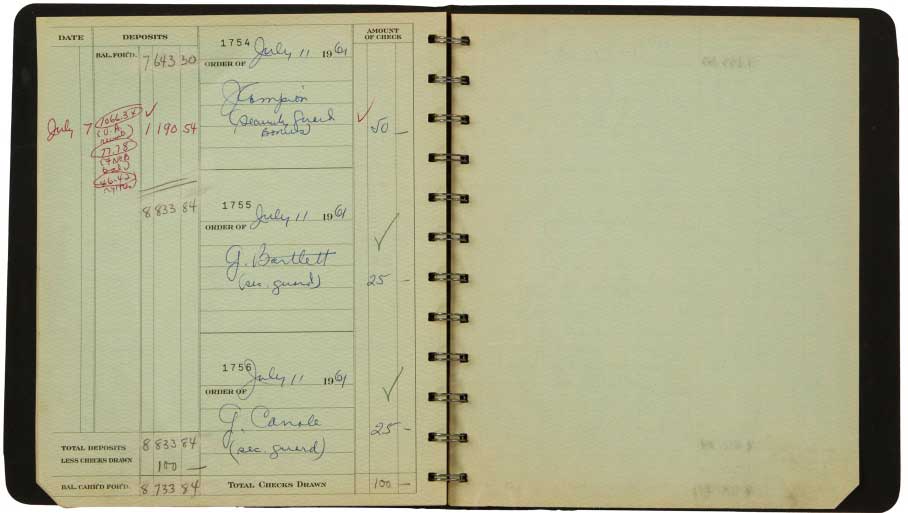 DATE DEPOSITS AMOUNT OF CHECK
BAL. FOR'D. 7 643 30
July 7 1066.34 1 190 54
(U.A.
77.78
46.42
8 833 84
1754 July 11 1961
ORDER OF
J Campion
(security guard
bonus) 50 —
1755 July 11 1961
ORDER OF
G. Bartlett
(sec. guard) 25 —
1756 July 11 1961
ORDER OF
G.
(sec. guard) 25 —
TOTAL DEPOSITS 8 833 84
LESS CHECKS DRAWN 100 —
BAL. CARR'D FOR'D. 8 733 84 TOTAL CHECKS DRAWN 100 —